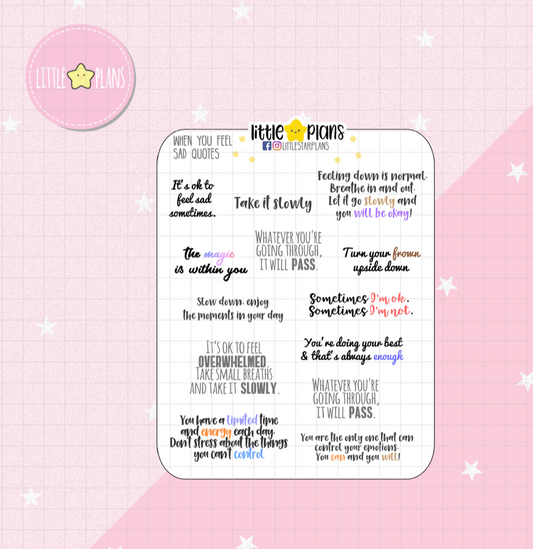 LITTLE PLANS
little Plans
LITTLESTARPLANS
WHEN YOU FEEL
SAD QUOTES
It's ok to
feel sad
sometimes.
Take it slowly
Feeling down is normal.
Breathe in and out.
Let it go slowly and
you will be okay!
the magic
is within you
WHATEVER YOU'RE
GOING THROUGH,
IT WILL PASS.
Turn your frown
upside down
Slow down. enjoy
the moments in your day
Sometimes I'm ok.
Sometimes I'm not.
IT'S OK TO FEEL
OVERWHELMED.
TAKE SMALL BREATHS
AND TAKE IT SLOWLY.
You're doing your best
& that's always enough
WHATEVER YOU'RE
GOING THROUGH,
IT WILL PASS.
You have a limited time
and energy each day.
Don't stress about the things
you can't control
You are the only one that can
control your emotions.
You can and you will!